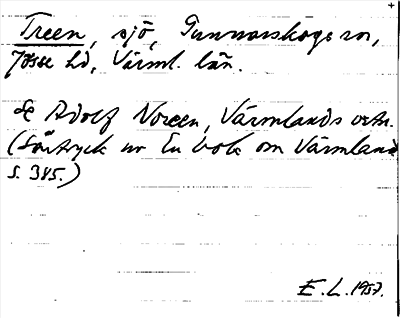 Treen, sjö, Gunnarskogs sn,
Jösse hd, Värml. län.
Se Adolf Noreen, Värmlands ortn.
(Särtryck ur En bok om Värmland
s. 385.)
E. L. 1957.